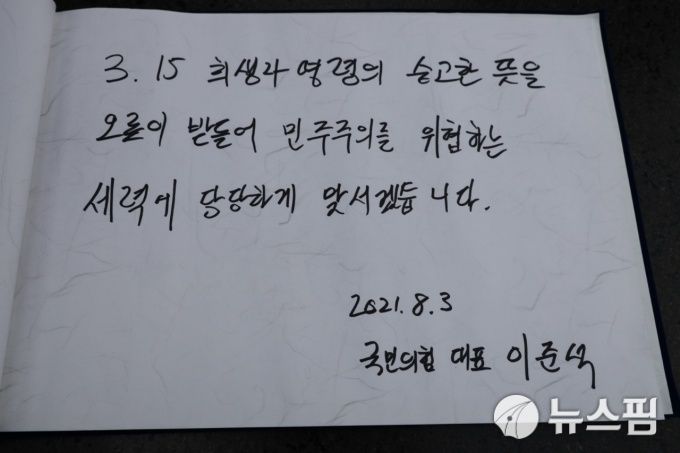 3. 15 희생자 영령의 숭고한 뜻을
오롯이 받들어 민주주의를 위협하는
세력에 당당하게 맞서겠습니다.
2021. 8. 3
국민의힘 대표 이준석
뉴스핌